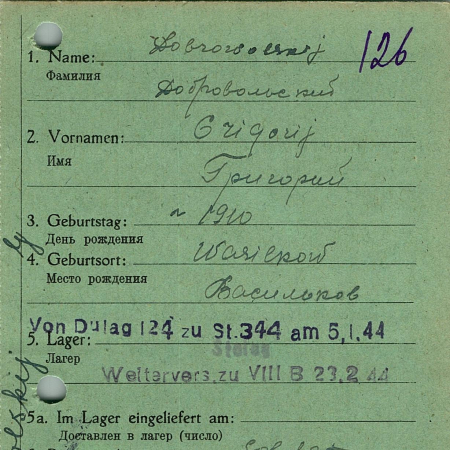 126
1. Name: Dobrowolskij
Фамилия
Добровольский
2. Vornamen: Grigorij
Имя
Григорий
3. Geburtstag: ~ 1910
День рождения
4. Geburtsort: Wasilkow
Место рождения
Васильков
Von Dulag 124 zu St.344 am 5.1.44
5. Lager:
Stalag
Лагер
Weitervers. zu VIII B 23.2.44
5a. Im Lager eingeliefert am:
Доставлен в лагер (число)